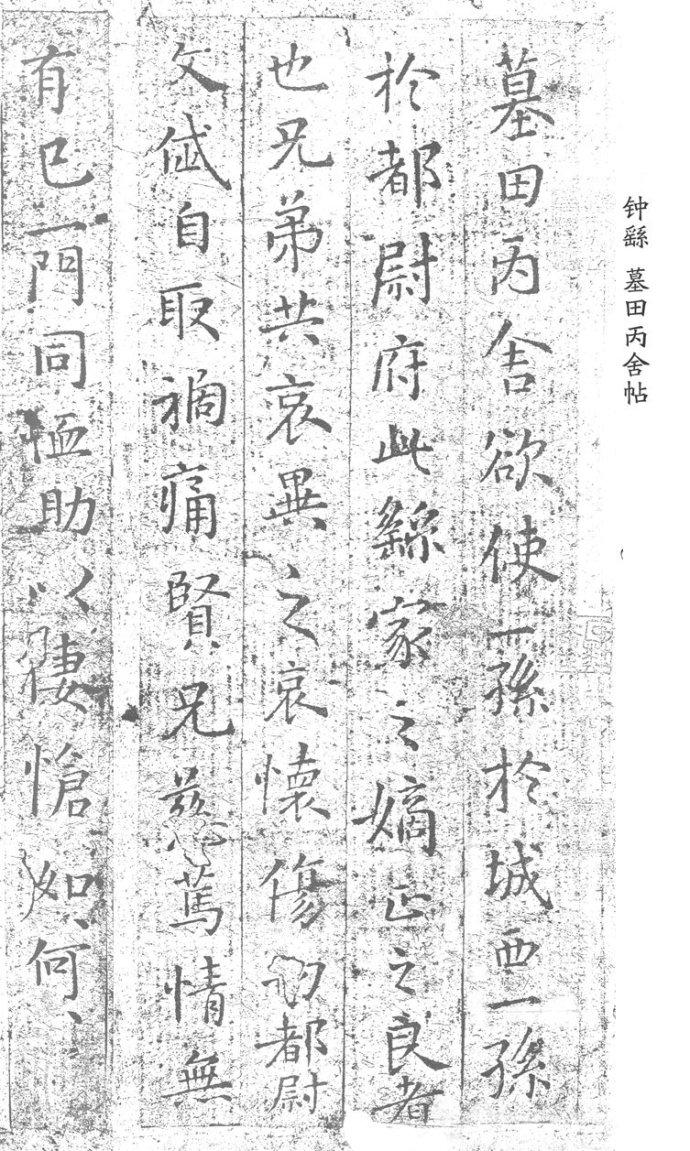 钟繇 墓田丙舍帖
墓田丙舍欲使一孫於城西一孫
於都尉府此繇家之嫡正之良者
也兄弟共哀異之哀懷傷切都尉
文岱自取禍痛賢兄慈篤情無
有已一門同恤助以悽愴如何如何